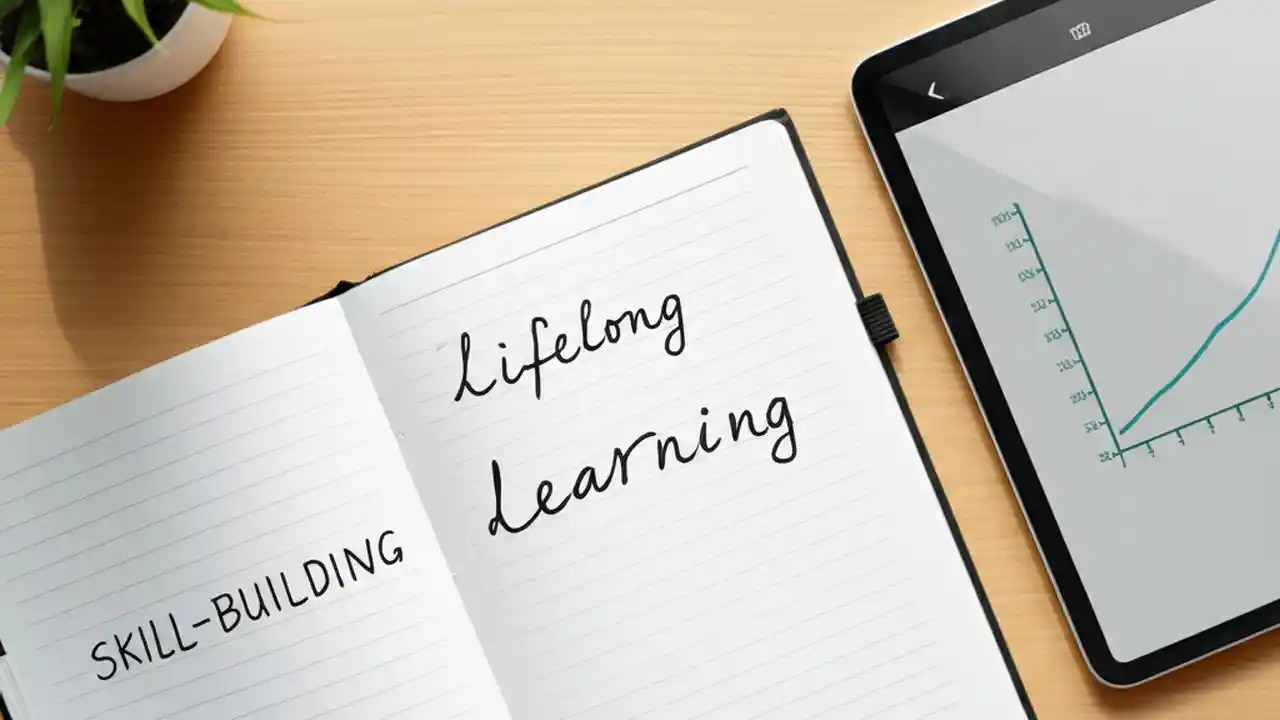 SKILL-BUILDING
Lifelong
Learning